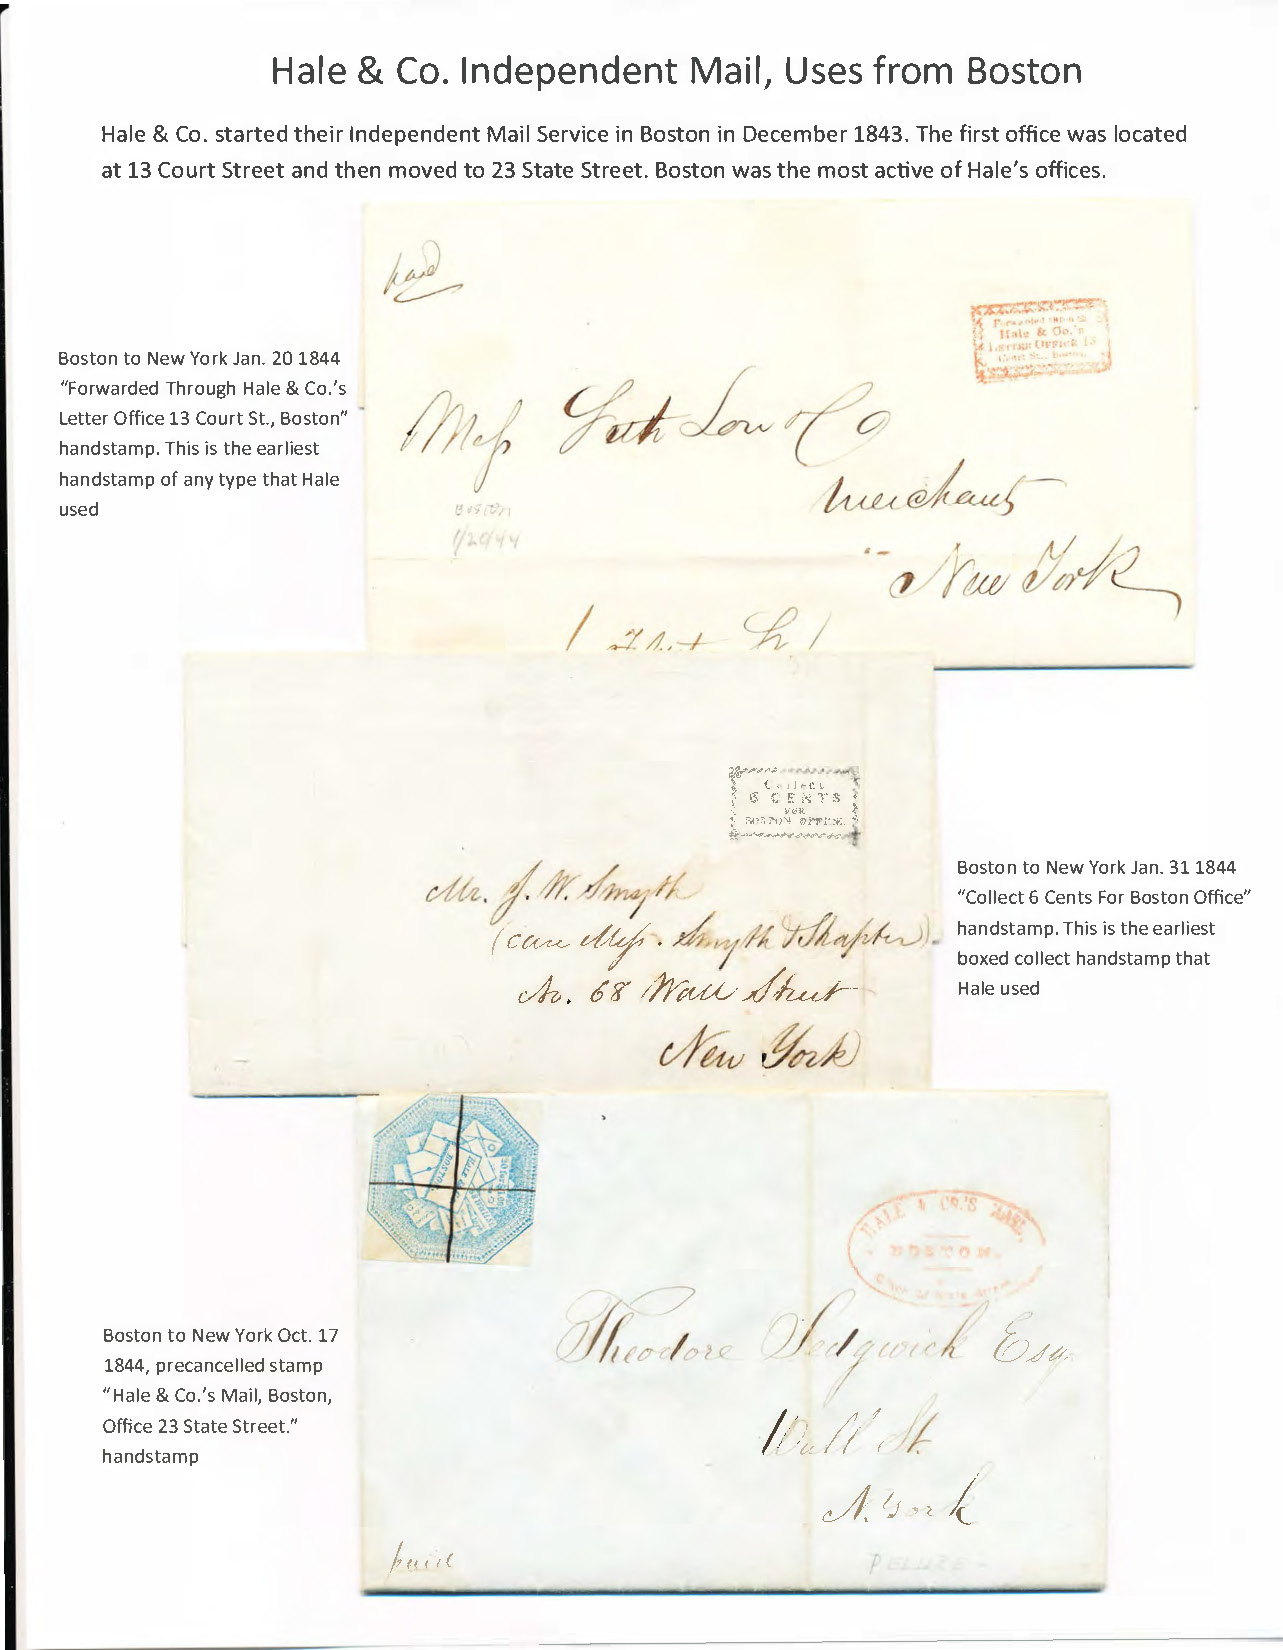 Hale & Co. Independent Mail, Uses from Boston
Hale & Co. started their Independent Mail Service in Boston in December 1843. The first office was located
at 13 Court Street and then moved to 23 State Street. Boston was the most active of Hale's offices.
paid
Forwarded through
Hale & Co.'s
Letter Office 13
Court St., Boston.
Boston to New York Jan. 20 1844
"Forwarded Through Hale & Co.'s
Letter Office 13 Court St., Boston"
handstamp. This is the earliest
handstamp of any type that Hale
used
Mess Seth Low & Co
Merchants
New York
Boston
1/20/44
Collect
6 CENTS
FOR
BOSTON OFFICE.
Mr. J. W. Smyth
(care Mess. Smyth & Shapter)
No. 68 Wall Street
New York
Boston to New York Jan. 31 1844
"Collect 6 Cents For Boston Office"
handstamp. This is the earliest
boxed collect handstamp that
Hale used
BOSTON
HALE &
HALE & CO.'S MAIL,
BOSTON.
Boston to New York Oct. 17
1844, precancelled stamp
"Hale & Co.'s Mail, Boston,
Office 23 State Street."
handstamp
Theodore Sedgwick Esq.
Wall St.
N. York
paid
PELURE